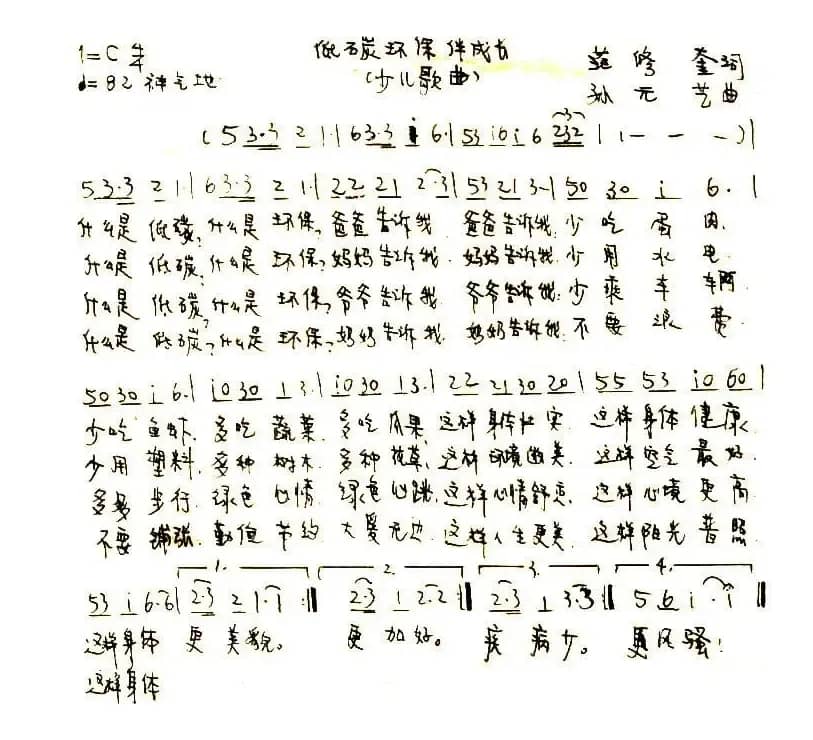 1=C 4/4 低碳环保伴成长 范修奎词
♩=82 神气地 (少儿歌曲) 孙元艺曲
(5 3·3 2 1·| 6 3·3 i 6·| 53 i0 i 6 232 | 1 - - - )|
5 3·3 2 1·| 6 3·3 2 1·| 22 21 2·3| 53 21 3-| 50 30 i 6· |
什么是 低碳? 什么是 环保? 爸爸告诉我 爸爸告诉我: 少 吃 蛋 肉.
什么是 低碳? 什么是 环保? 妈妈告诉我. 妈妈告诉我. 少 用 水 电.
什么是 低碳? 什么是 环保? 爷爷告诉我 爷爷告诉我: 少 乘 车 辆
什么是 低碳? 什么是 环保? 奶奶告诉我. 奶奶告诉我: 不 要 浪 费.
50 30 i 6·| i0 30 1 3·| i0 30 1 3·| 22 21 30 20| 55 53 i0 60 |
少吃 鱼虾. 多吃 蔬菜. 多吃 瓜果, 这样身体壮实 这样身体 健康.
少用 塑料, 多种 树木. 多种 花草, 这样环境幽美. 这样空气 最好.
多多 步行. 绿色 心情. 绿色 心跳, 这样心情舒 这样心境 更高
不要 铺张. 勤俭 节约 大爱无边. 这样人生更美. 这样阳光 普照.
1. 2. 3. 4.
53 i 6·6| 2·3 2 1·1 :‖ 2·3 1 2·2 :‖ 2·3 1 3·3 :‖ 5 6 i · i ‖
这样身体 更 美貌。 更 加好。 疾 病少。 更风骚!
这样身体